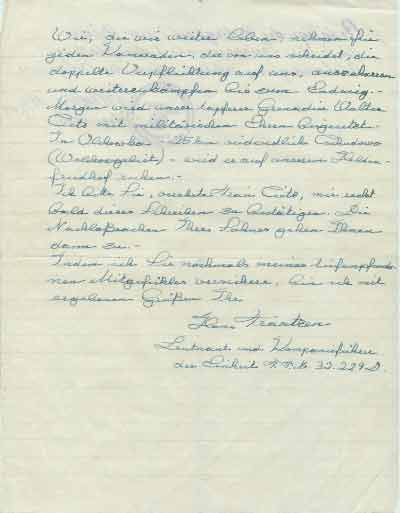 Wir, die wir weiter leben, nehmen für
jeden Kameraden, der von uns scheidet, die
doppelte Verpflichtung auf uns, auszuharren
und weiterzukämpfen bis zum Endsieg.-
Morgen wird unser tapferer Grenadier Walter
mit militärischen Ehren beigesetzt.
In 25 km südwestlich
(Waldaigebiet) - wird er auf unserem Helden-
friedhof ruhen.-
Ich bitte Sie, verehrte Frau mir recht
bald dieses Schreiben zu bestätigen. Die
Nachlaßsachen Ihres Sohnes gehen Ihnen
dann zu.-
Indem ich Sie nochmals meines tiefempfunde-
nen Mitgefühles versichere, bin ich mit
ergebenen Grüßen Ihr
Hans
Leutnant und Kompanieführer
der Einheit F.P.Nr. 32.229 D.